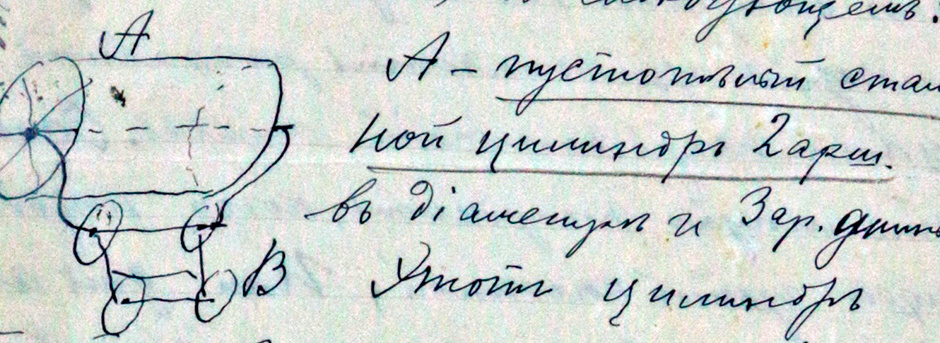 А
А – пустотѣлый сталь
ной цилиндръ 2 арш.
въ діаметрѣ и 3 ар. длины
Этотъ цилиндръ
В